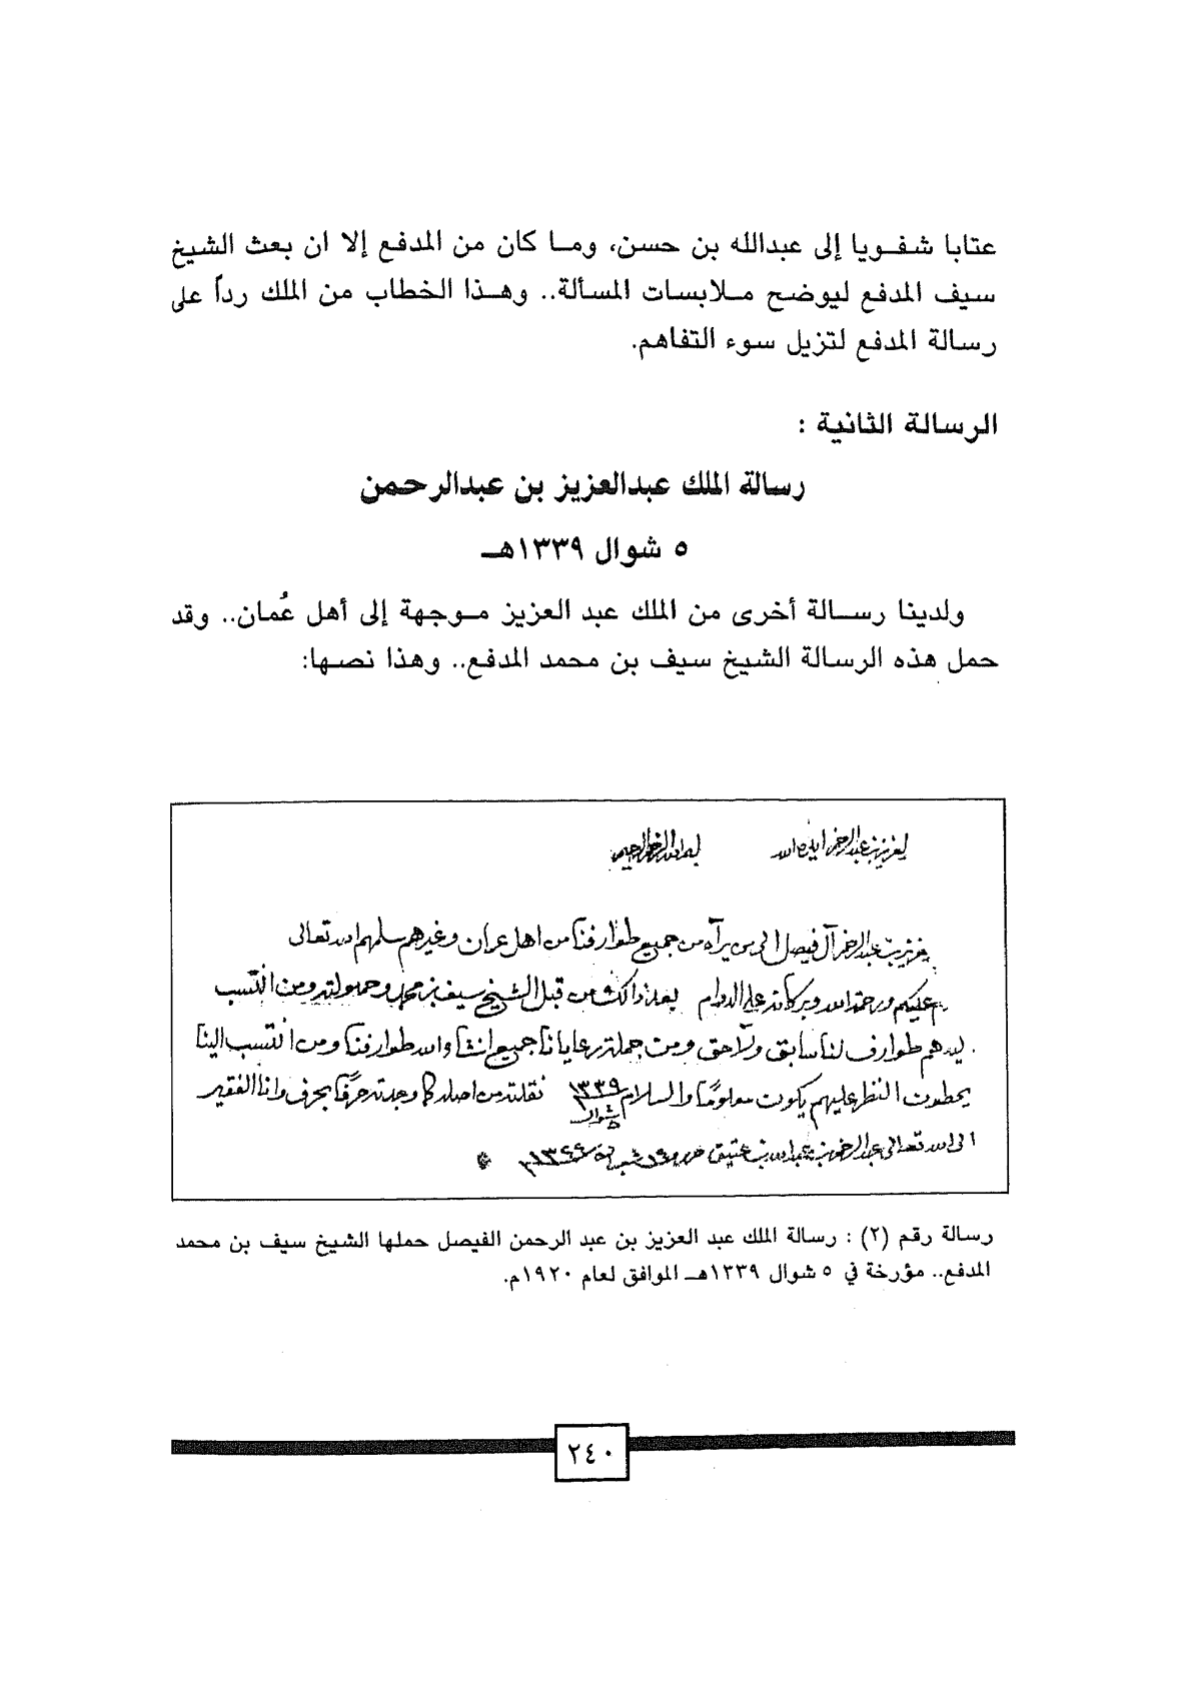 عتابا شفويا إلى عبدالله بن حسن، وما كان من المدفع إلا ان بعث الشيخ
سيف المدفع ليوضح ملابسات المسألة.. وهذا الخطاب من الملك رداً على
رسالة المدفع لتزيل سوء التفاهم.
الرسالة الثانية :
رسالة الملك عبدالعزيز بن عبدالرحمن
٥ شوال ١٣٣٩هـ
ولدينا رسالة أخرى من الملك عبد العزيز موجهة إلى أهل عُمان.. وقد
حمل هذه الرسالة الشيخ سيف بن محمد المدفع.. وهذا نصها:
بسم الله الرحمن الرحيم
لعزيز بن عبدالرحمن ايده الله
عزيز بن عبدالرحمن آل فيصل الى من يرآه من جميع طوارفنا من اهل عمان وغيرهم سلمهم الله تعالى
م عليكم ورحمة الله وبركاته على الدوام بعد ذالك من قبل الشيخ سيف بن محمد وحمولته ومن انتسب
ليه هم طوارف لنا سابق ولاحق ومن جملة رعايانا جميع انشا الله طوارفنا ومن انتسب الينا
يحطون النظر عليهم يكون معلومًا والسلام ٥ شوال ١٣٣٩ نقلته من اصله كما وجدته حرفًا بحرف وانا الفقير
الى الله تعالى عبدالرحمن بن عبدالله بن عتيق
رسالة رقم (٢) : رسالة الملك عبد العزيز بن عبد الرحمن الفيصل حملها الشيخ سيف بن محمد
المدفع.. مؤرخة في ٥ شوال ١٣٣٩هـ الموافق لعام ١٩٢٠م.
٢٤٠